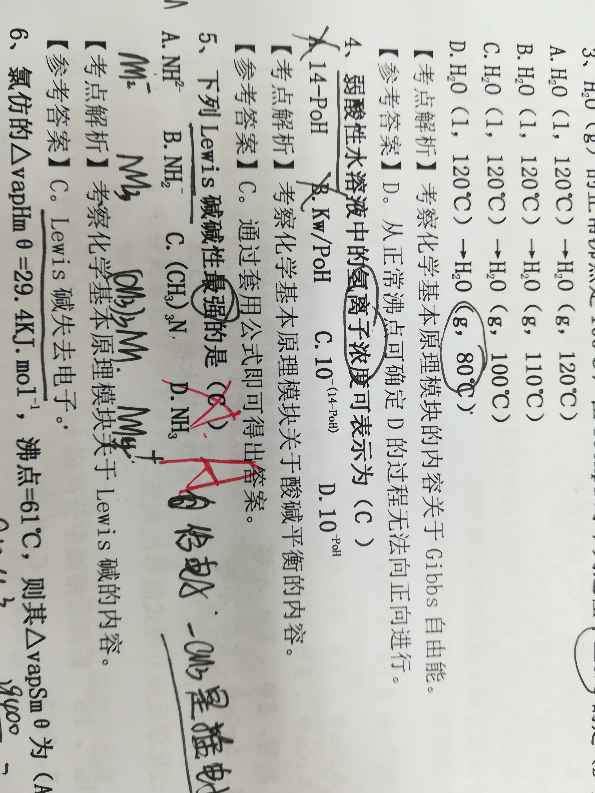 3、H₂O（g）的正常沸点是100℃，
A.H₂O（l，120℃）→H₂O（g，120℃）
B.H₂O（l，120℃）→H₂O（g，110℃）
C.H₂O（l，120℃）→H₂O（g，100℃）
D.H₂O（l，120℃）→H₂O（g，80℃）
【考点解析】考察化学基本原理模块的内容关于Gibbs自由能。
【参考答案】D。从正常沸点可确定D的过程无法向正向进行。
4、弱酸性水溶液中的氢离子浓度可表示为（C ）
A.14-PoH B.Kw/PoH C.10⁻⁽¹⁴⁻ᴾᵒᴴ⁾ D.10⁻ᴾᵒᴴ
【考点解析】考察化学基本原理模块关于酸碱平衡的内容。
【参考答案】C。通过套用公式即可得出答案。
5、下列Lewis碱碱性最强的是（C ）
A
A.NH²⁻ B.NH₂⁻ C.(CH₃)₃N D.NH₃
给电子 -CH₃是推电
NH₂⁻ NH₃ (CH₃)₃NH NH₄⁺
【考点解析】考察化学基本原理模块关于Lewis碱的内容。
【参考答案】C。Lewis碱失去电子。
6、氯仿的△vapHmθ=29.4KJ.mol⁻¹，沸点=61℃，则其△vapSmθ为（A
9400